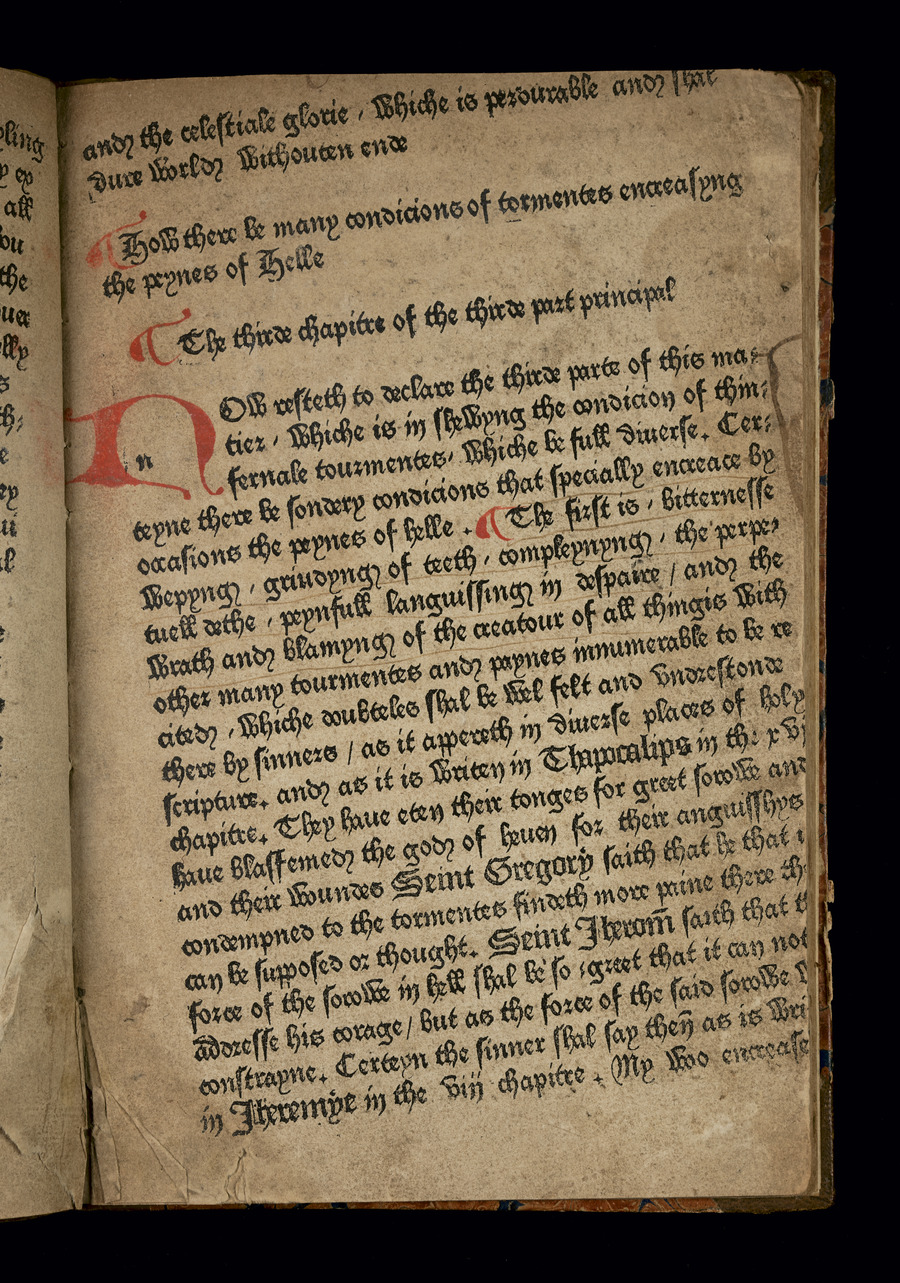 and the celestiale glorie, Whiche is perdurable and shal
dure World Withouten ende
How there be many condicions of tormentes encreasyng
the peynes of Helle
The thirde chapitre of the thirde part principal
NOW resteth to declare the thirde parte of this ma-
n
tier, Whiche is in shewyng the condicion of thin-
fernale tourmentes, Whiche be full diuerse. Cer-
teyne there be sondery condicions that specially encreace by
occasions the peynes of helle. The first is, bitternesse
Wepyng, grindyng of teeth, compleynyng, the perpe-
tuell dethe, peynfull languissing in despaire / and the
Wrath and blamyng of the creatour of all thingis With
other many tourmentes and paynes innumerable to be re
cited, Whiche doubteles shal be Wel felt and vndrestonde
there by sinners / as it appereth in diuerse places of holy
scripture. and as it is Writen in Thapocalips in the xvi
chapitre. They haue eten their tonges for greet sorowe and
haue blassemed the god of heuen for their anguisshys
and their Woundes Seint Gregory saith that he that i
condempned to the tormentes findeth more paine there th
can be supposed or thought. Seint Iherom̄ saith that t
force of the sorowe in hell shal be so greet that it can not
addresse his corage / but as the force of the said sorowe
constrayne. Certeyn the sinner shal say then̄ as is Wri
in Iheremye in the viij chapitre. My Woo encrease
ling
ex
all
ou
the
uer
lly
s
th-
e
ey
ui